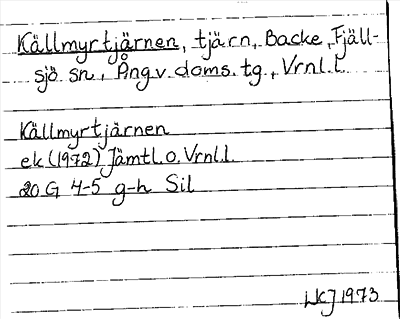 Källmyrtjärnen, tjärn, Backe, Fjäll-
sjö sn, Ång.v.doms.tg., Vrnl.l.
Källmyrtjärnen
ek (1972) Jämtl.o.Vrnl.l.
20 G 4-5 g-h Sil
LKJ 1973